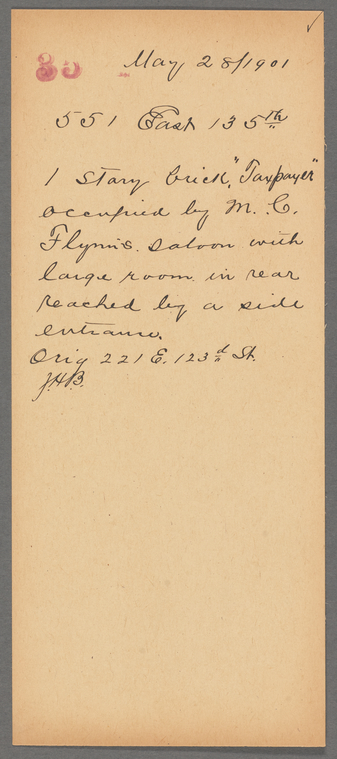 85 May 28/1901
551 East 135th
1 story brick, "Taxpayer"
occupied by M. C.
Flynn's saloon with
large room in rear
reached by a side
entrance.
Orig 221 E. 123d St.
J.H.B.